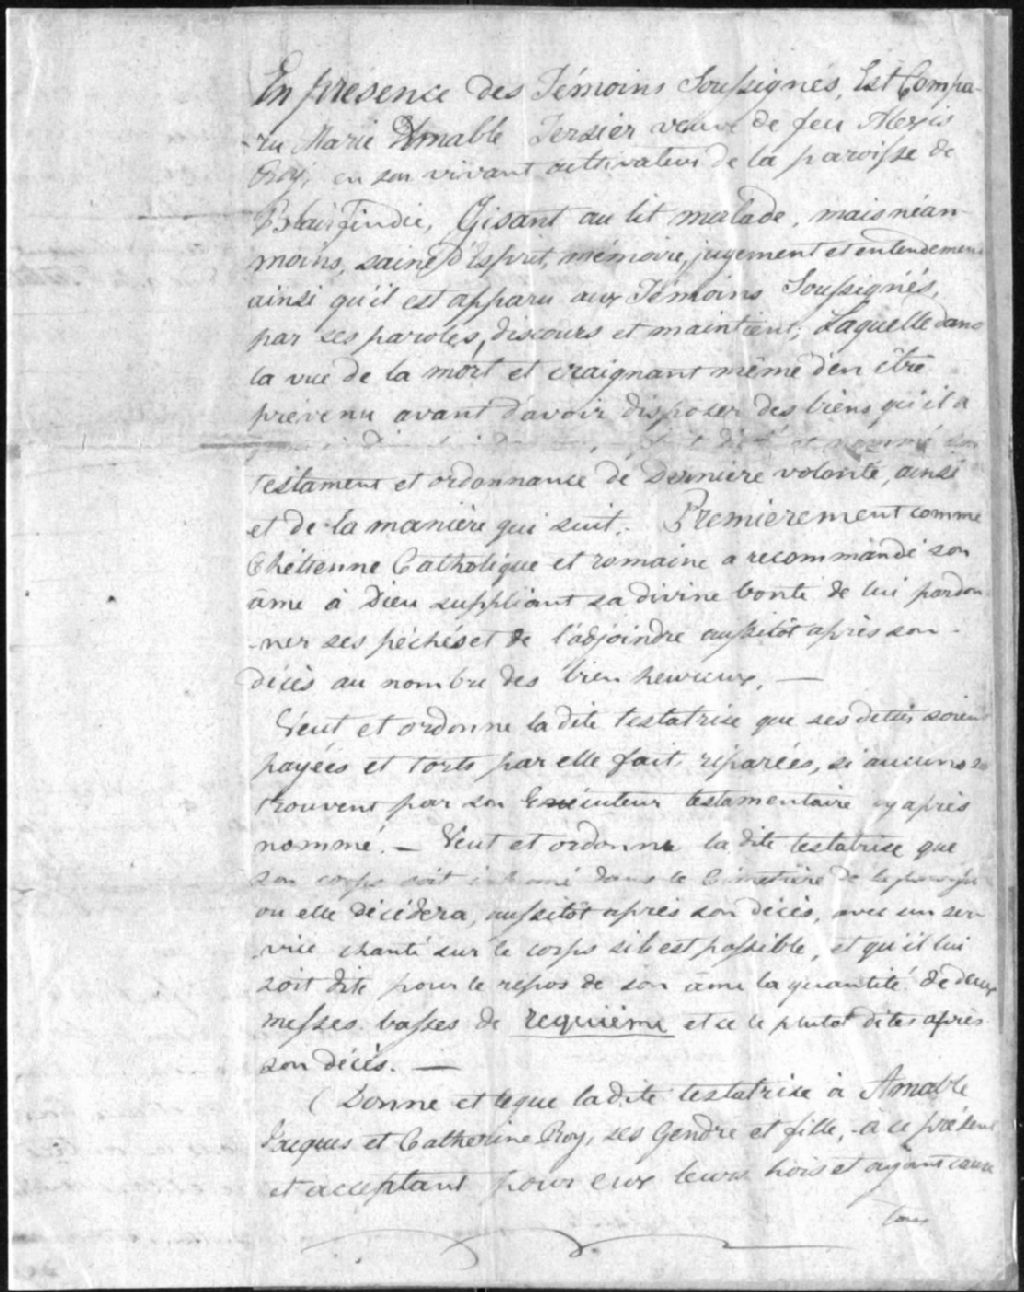 En présence des Témoins Soussignés, Est Compa-
-ru Marie Amable Tersier veuve de feu Alexis
Roy, en son vivant cultivateur de la paroisse de
Blairfindie, Gisant au lit malade, mais néan
moins, saine d'Esprit, mémoire, jugement et entendement
ainsi qu'il est apparu aux Témoins Soussignés,
par ses paroles, discours et maintient; Laquelle dans
la vue de la mort et craignant même d'en être
prévenu avant d'avoir disposer des biens qu'il a
dit et nommé son
testament et ordonnance de dernière volonté, ainsi
et de la manière qui suit. Premièrement comme
Chétienne Catholique et romaine a recommandé son
âme à Dieu suppliant sa divine bonté de lui pardon
-ner ses péchés et de l'adjoindre aussitôt après son
décès au nombre des bien heureux. —
Veut et ordonne la dite testatrise que ses dettes soient
payées et torts par elle fait réparées, si aucuns se
trouvent par son Exécuteur testamentaire cy après
nommé. — Veut et ordonne la dite testatrise que
son corps soit inhumé dans le Cimetière de la paroisse
ou elle décédera, aussitôt après son décès, avec un ser
vice chanté sur le corps si il est possible, et qu'il lui
soit dite pour le répos de son âme la quantité de deux
messes basses de requième et ce le plutot dites après
son décès. —
Donne et legue la dite testatrise à Amable
Jacques et Catherine Roy, ses Gendre et fille, à ce présent
et acceptant pour eux leurs hoirs et ayant cause